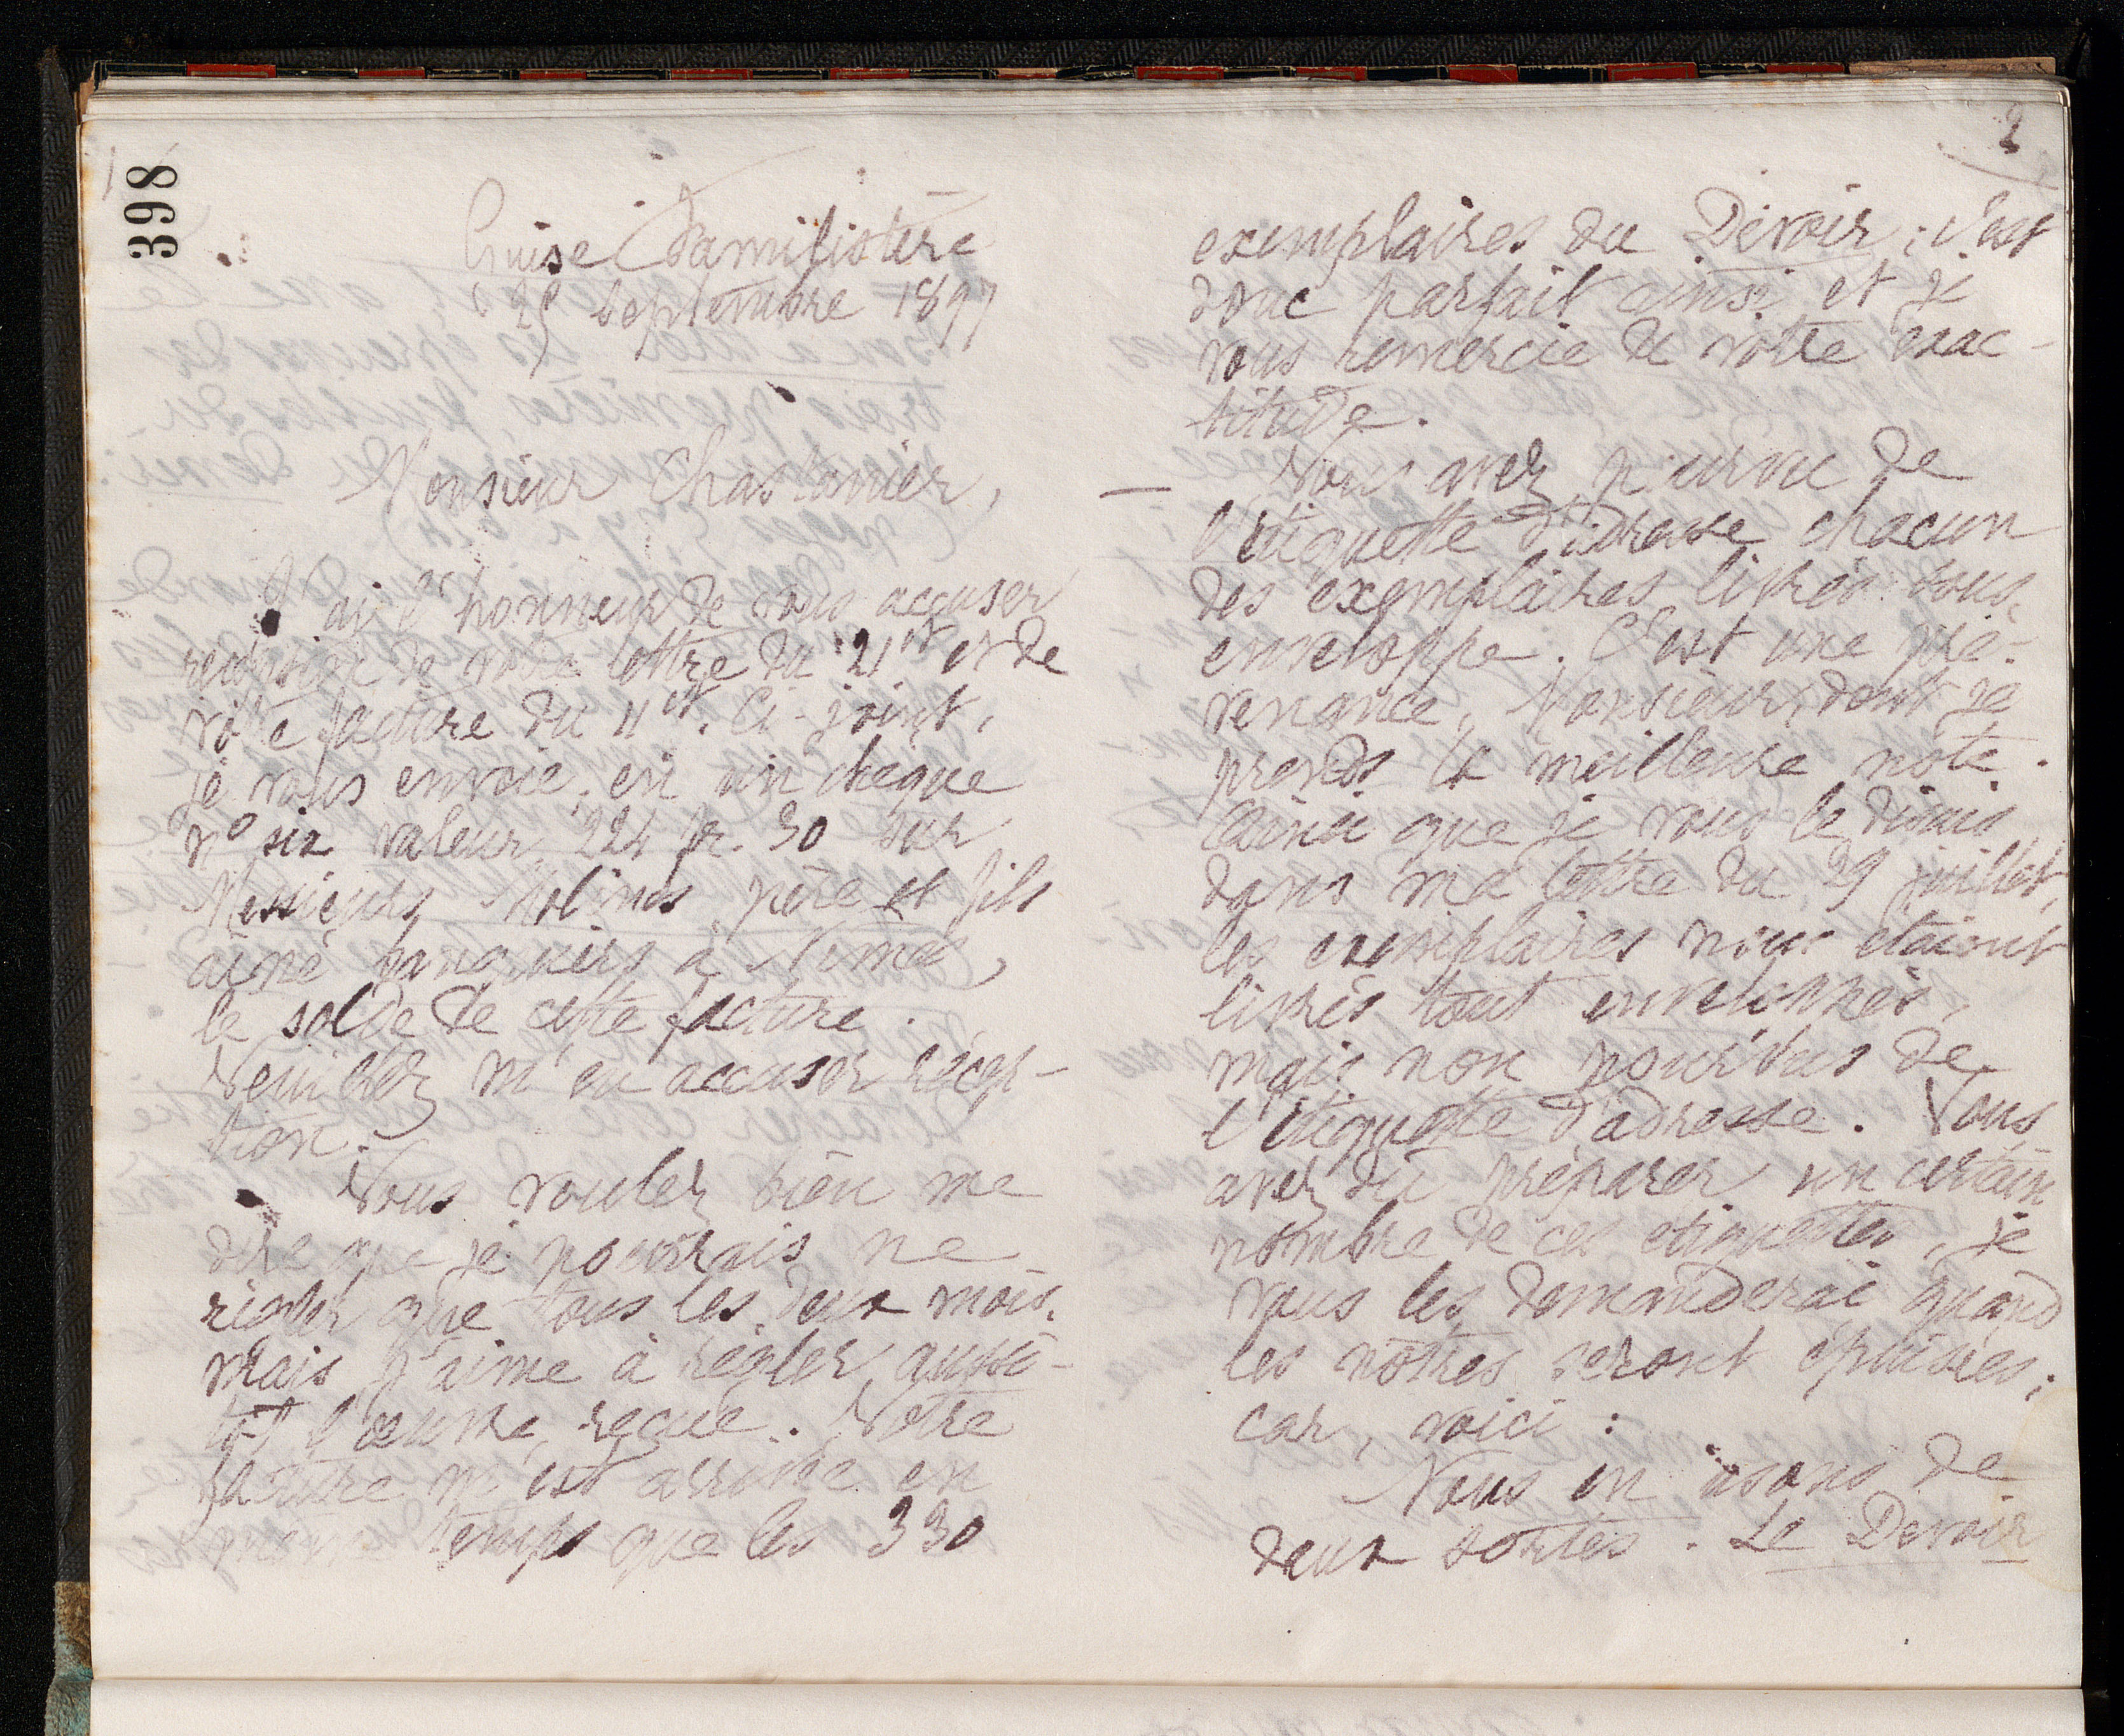 398
1
Guise Familistère
25 septembre 1897
Monsieur Chastanier,
J'ai l'honneur de vous accuser
réception de votre lettre du 21 ct et de
votre facture du 11 ct. Ci-joint,
je vous envoie, en un chèque
n° six valeur 224 fr. 30 sur
Messieurs Molines père et fils
aîné banquiers à Nîmes,
le solde de cette facture.
Veuillez m'en accuser récep-
tion.
Vous voulez bien me
dire que je pourrais ne
régler que tous les deux mois.
mais j'aime à régler aussi-
tôt l'œuvre reçue. Votre
facture m'est arrivée en
même temps que les 330
2
exemplaires du Devoir ; c'est
donc parfait ainsi et je
vous remercie de votre exac-
titude.
Vous avez pourvu de
l'étiquette d'adresse chacun
des exemplaires livrés sous
enveloppe. C'est une pré-
venance, Monsieur, dont je
prends la meilleure note.
Ainsi que je vous le disais
dans ma lettre du 29 juillet,
les exemplaires nous étaient
livrés tout enveloppés,
mais non pourvus de
l'étiquette d'adresse. Vous
avez dû préparer un certain
nombre de ces étiquettes, je
vous les demanderai quand
les nôtres seront épuisées ;
car, voici :
Nous en usons de
deux sortes. Le Devoir